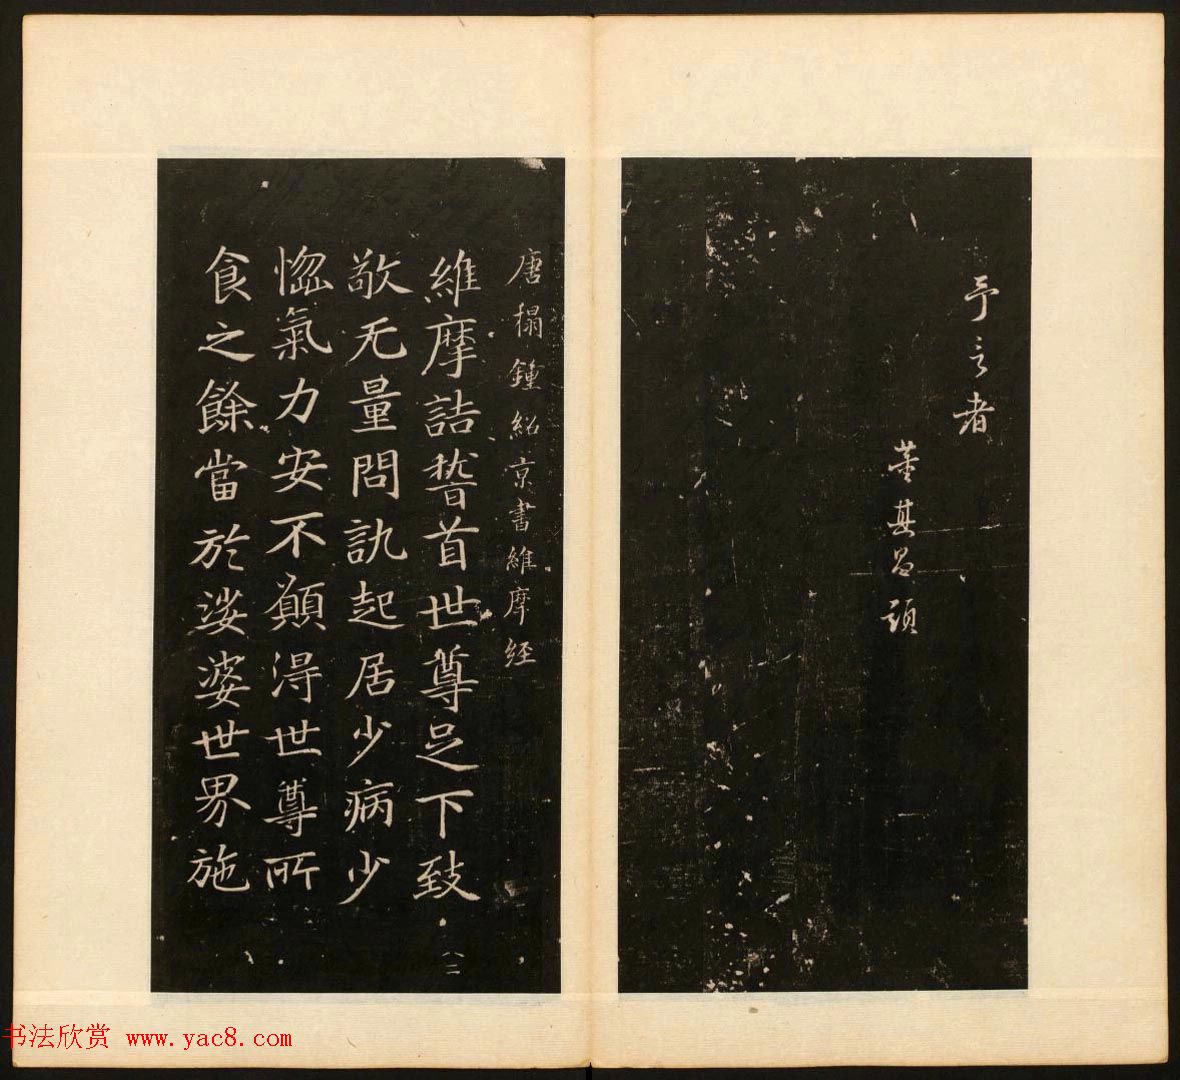 予言者
董其昌題
唐榻鍾紹京書維摩経
維摩詰稽首世尊足下致
敬无量問訊起居少病少
惱氣力安不願得世尊所
食之餘當於娑婆世界施
八二
书法欣赏 www.yac8.com